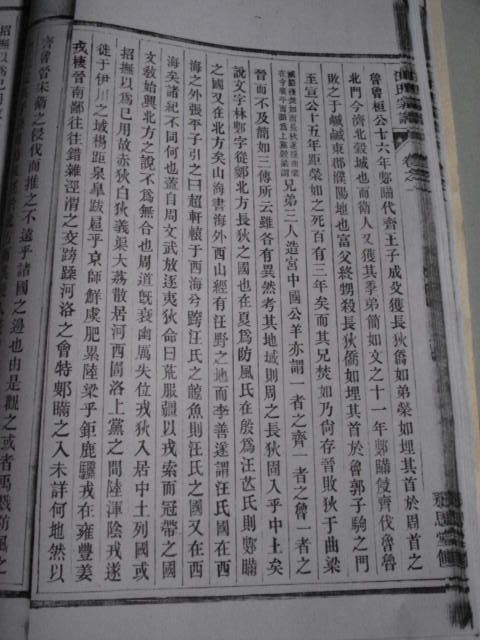 魯魯桓公十六年鄋瞞代齊王子成父獲長狄僑如弟榮如埋其首於周首之
北門今濟北穀城也而衛人又獲其季弟簡如文之十一年鄋瞞侵齊伐魯魯
敗之于鹹鹹東郡濮陽地也富父終甥殺長狄僑如埋其首於魯郭子駒之門
至宣公十五年距榮如之死百有三年矣而其兄焚如乃尚存晉敗狄于曲梁
兄弟三人造宮中國公羊亦謂一者之齊一者之魯一者之
晉而不及簡如三傳所云雖各有異然考其地域則周之長狄固入乎中土矣
說文字林鄋字從鄋北方長狄之國也在夏爲防風氏在殷爲汪芒氏則鄋瞞
之國又在北方矣山海書海外西山經有汪野之地而李善遂謂汪氏國在西
海之外張平子引之曰超軒轅于西海兮跨汪氏之龍魚則汪氏之國又在西
海矣諸紀不同何也蓋自周文武放逐夷狄命曰荒服疆以戎索而冠帶之國
文敎始興北方之說不爲無合也周道旣衰幽厲失位戎狄入居中土列國或
招撫以爲己用故赤狄白狄義渠大荔散居河西圁洛上黨之間陸渾陰戎遂
徙于伊川之域楊距泉皋跋扈乎京師鮮虞肥累陸梁乎鉅鹿驪戎在雍豐姜
戎棲晉南鄙往往錯雜涇渭之交蹂河洛之會特鄋瞞之入未詳何地然以
齊魯晉宋衛之侵伐而推之不遠乎諸國之邊也由是觀之或者禹戮防風之